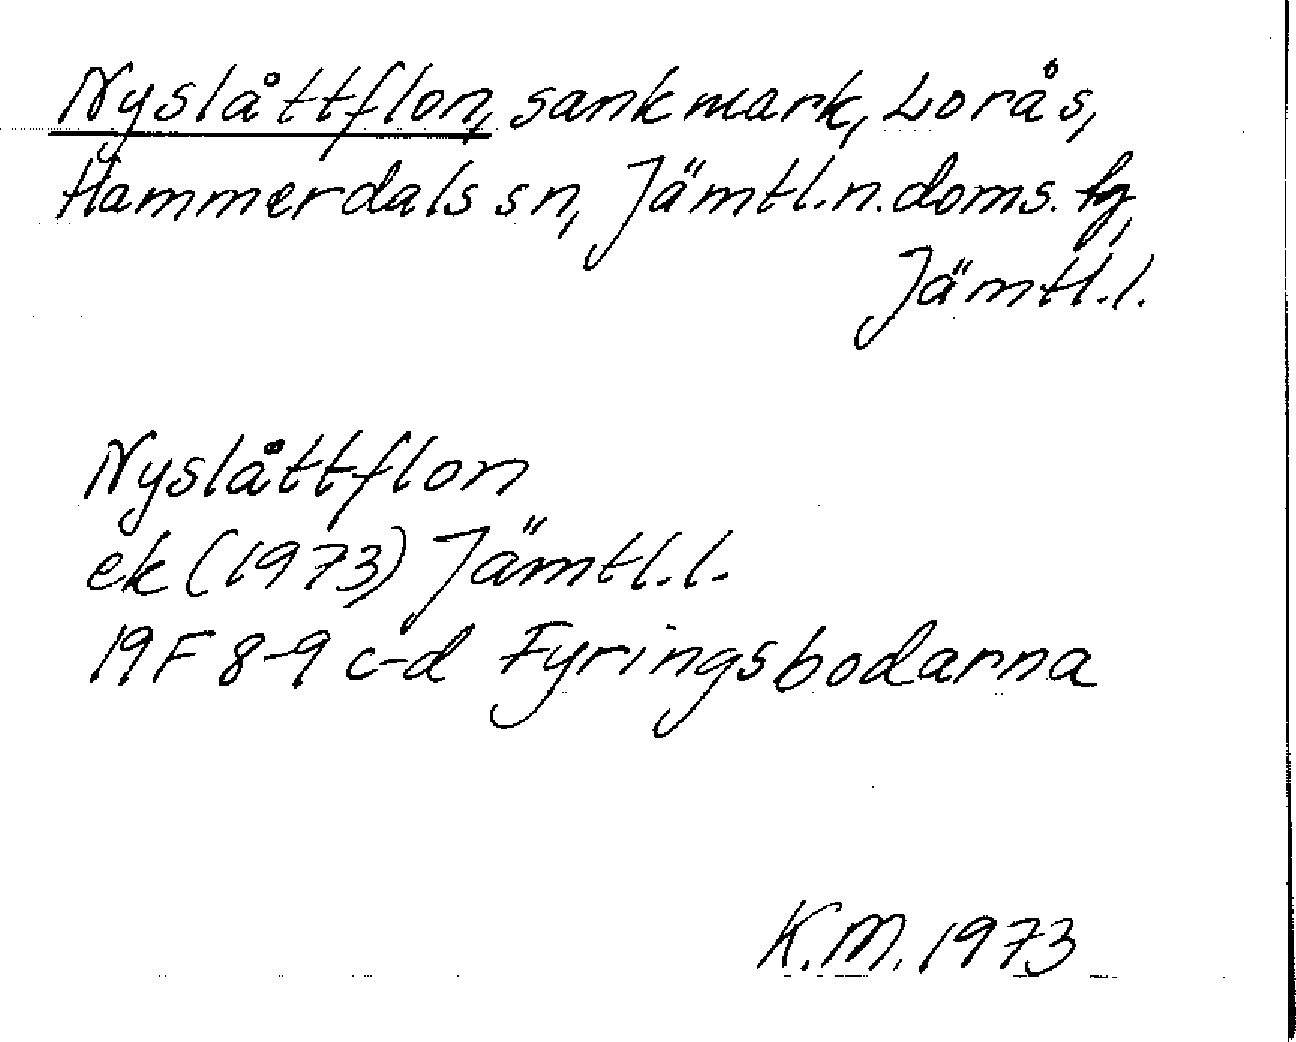 Nyslåttflon, sankmark, Lorås,
Hammerdals sn, Jämtl.n.doms. fg,
Jämtl.l.
Nyslåttflon
ek (1973) Jämtl.l.
19F 8-9 c-d Fyringsbodarna
K.M. 1973